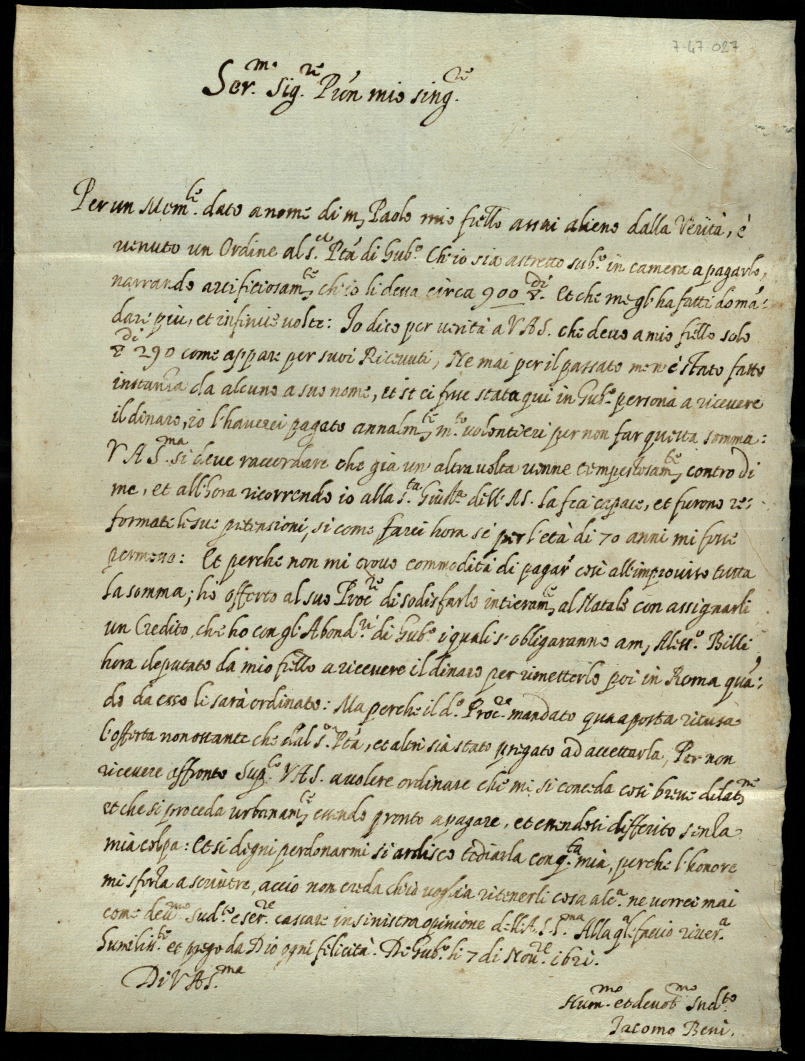 7-47 027
Ser.mo Sig.re P'ron mio sing.re
Per un Mem.le dato a nome di m. Paolo mio f'ello assai alieno dalla Verità, è
venuto un Ordine al s.el P'tà di Gub.o Ch'io sia astretto sub.o in camera a pagarlo,
narrando artificiosam.te ch'io li deva circa 900 di ▽. Et che me gl'ha fatti domã=
dare più, et infinite volte: Io dico per verità a V A S. che devo a mio f'ello solo
di ▽ 290 come appare per suoi Ricevuti, Ne mai per il passato me n'è stato fatto
instanza da alcuno a suo nome, et se ci fusse stata qui in Gub.o persona a ricevere
il dinaro, io l'haverei pagato annalm.te m.to volontieri per non far questa somma:
V A S.ma si deve raccordare che già un'altra volta venne tempestosam.te contro di
me, et all'hora ricorrendo io alla s.ta Giust.a dell'AS. la feci capace, et furono re=
formate le sue pretensioni, si come farei hora se per l'età di 70 anni mi fosse
permesso: Et perche non mi trovo commodità di pagar' così all'improviso tutta
la somma; ho offerto al suo Proc.re di sodisfarlo intieram.te al Natale con assignarli
un Credito, che ho con gli Abond.ri di Gub.o i quali s'obligaranno a m. Aless.o Billi,
hora deputato da mio f'ello a ricevere il dinaro per rimetterlo poi in Roma quã=
do da esso li sarà ordinato: Ma perche il d.o Proc.re mandato qua aposta ricusa
l'offerta non ostante che dal s.o P'tà, et altri sia stato pregato ad accettarla, Per non
ricevere affronto Sup.co V A S. a volere ordinare che mi si conceda così breve dilat.ne
et che si proceda urbanam.te essendo pronto a pagare, et essendosi differito senza
mia colpa: Et si degni perdonarmi si ardisco tediarla con q.ta mia, perche l'honore
mi sforza a scrivere, acciò non creda ch'io voglia ritenerli cosa alc.a ne vorrei mai
come dev.mo sud.to e ser.re cascare in sinistra opinione dell'A S S.ma Alla q.le faccio river.a
humiliss.te et prego da Dio ogni felicità. Di Gub.o li 7 di Nov.re 1621.
Di V A S.ma
Hum.mo et devot.mo Sud.to
Iacomo Beni.